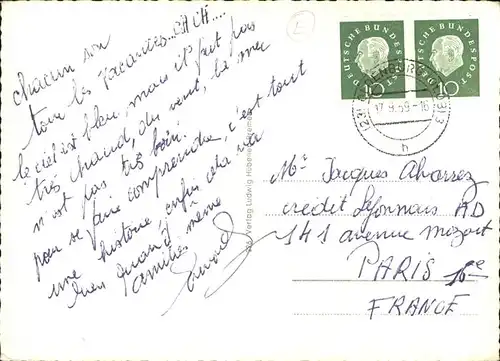 chacun son
tour les vacances...
le ciel est bleu, mais il fait pas
très chaud, du vent, la mer
n'est pas très bon!
pour se faire comprendre, c'est tout
une histoire, enfin cela va
bien quand même
Familles
Mr Jacques
crédit Lyonnais AD
141 avenue Mozart
PARIS 16e
FRANCE
DEUTSCHE BUNDESPOST
10
DEUTSCHE BUNDESPOST
10
17.9.59-16
h
Verlag Ludwig